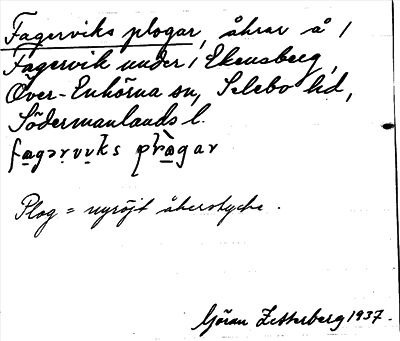 Fagerviks plogar, åkrar å 1
Fagervik under 1 Ekensberg,
Över-Enhörna sn, Selebo hd,
Södermanlands l.
plog̀ar
Plog = nyröjt åkerstycke.
Göran Zetterberg 1937.